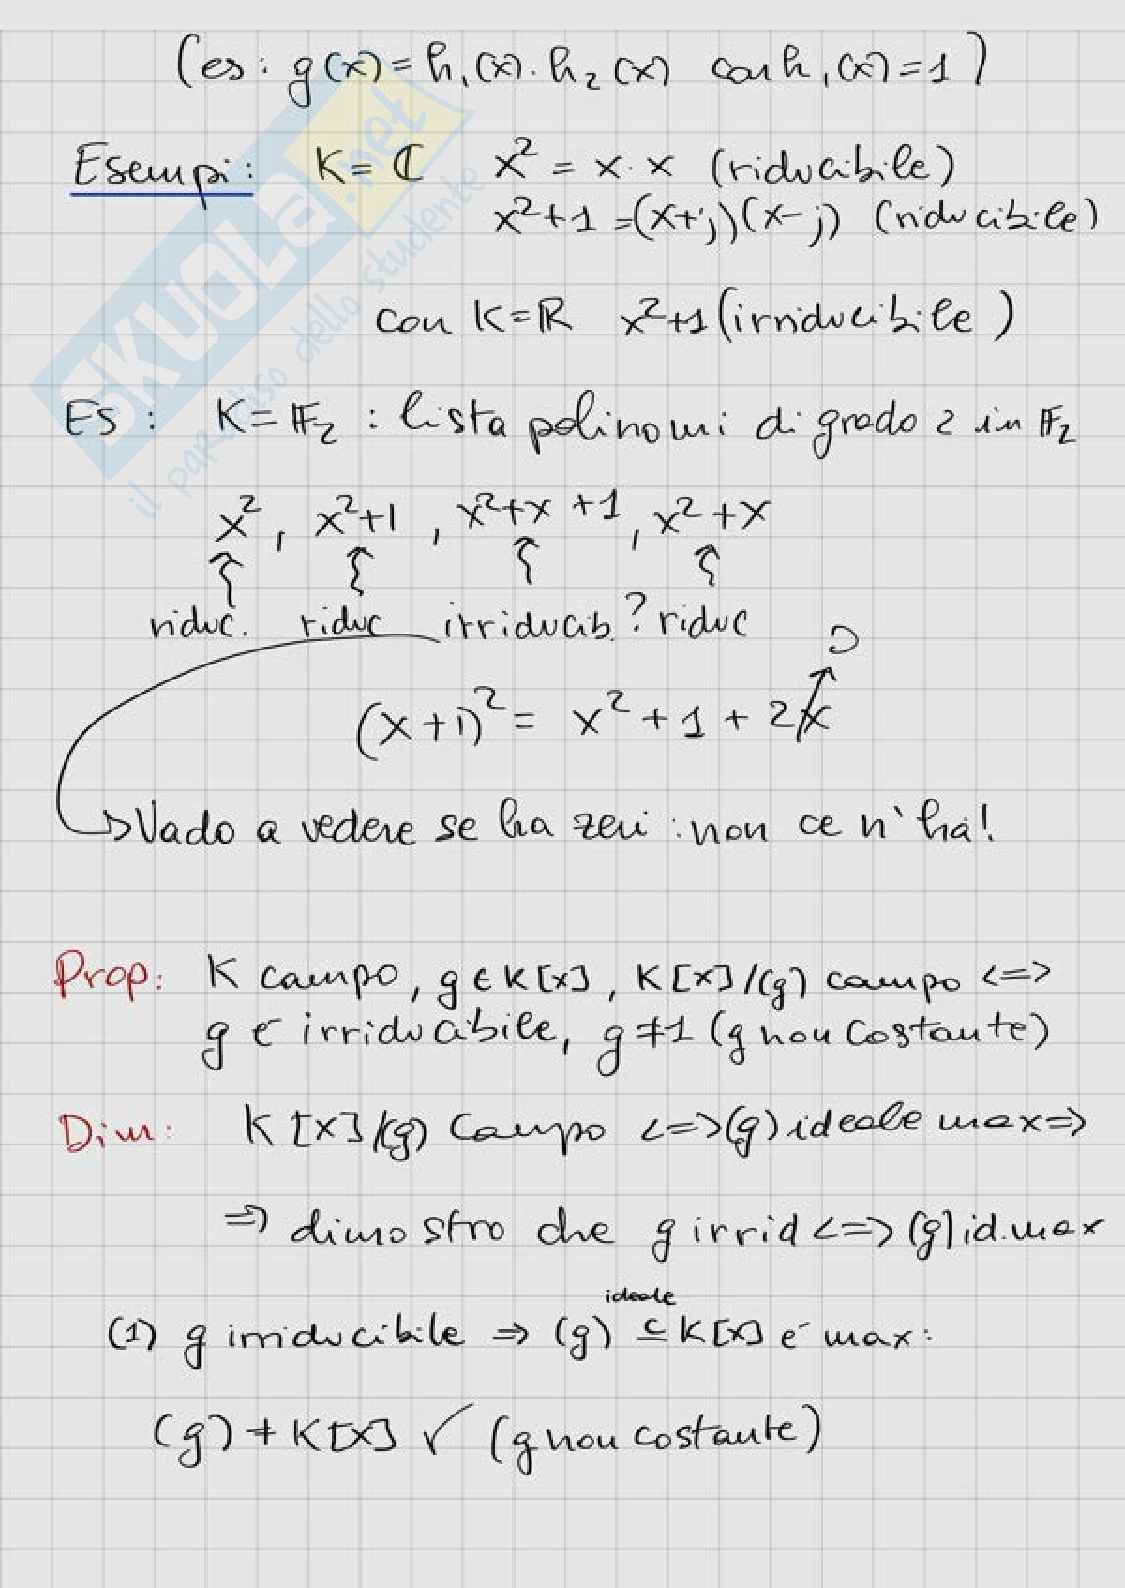 (es: g(x) = h₁(x)·h₂(x) con h₁(x)=1)
Esempi: K=ℂ x² = x·x (riducibile)
x²+1 = (x+j)(x-j) (riducibile)
con K=ℝ x²+1 (irriducibile)
Es: K=𝔽₂: lista polinomi di grado 2 in 𝔽₂
x², x²+1, x²+x+1, x²+x
riduc. riduc irriducib.? riduc
0
(x+1)² = x²+1+2x
→Vado a vedere se ha zeri: non ce n'ha!
Prop: K campo, g∈K[x], K[x]/(g) campo <=>
g è irriducibile, g≠1 (g non costante)
Dim: K[x]/(g) campo <=> (g) ideale max =>
=> dimostro che g irrid <=> (g) id. max
ideale
(1) g irriducibile => (g) ⊆ K[x] è max:
(g) ≠ K[x] ✓ (g non costante)
SKUOLA.net
il paradiso dello studente